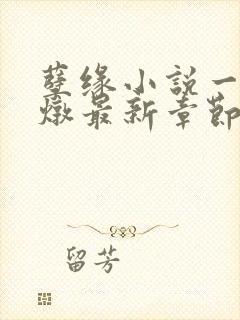 孽缘小説一
燉最新章節
留芳